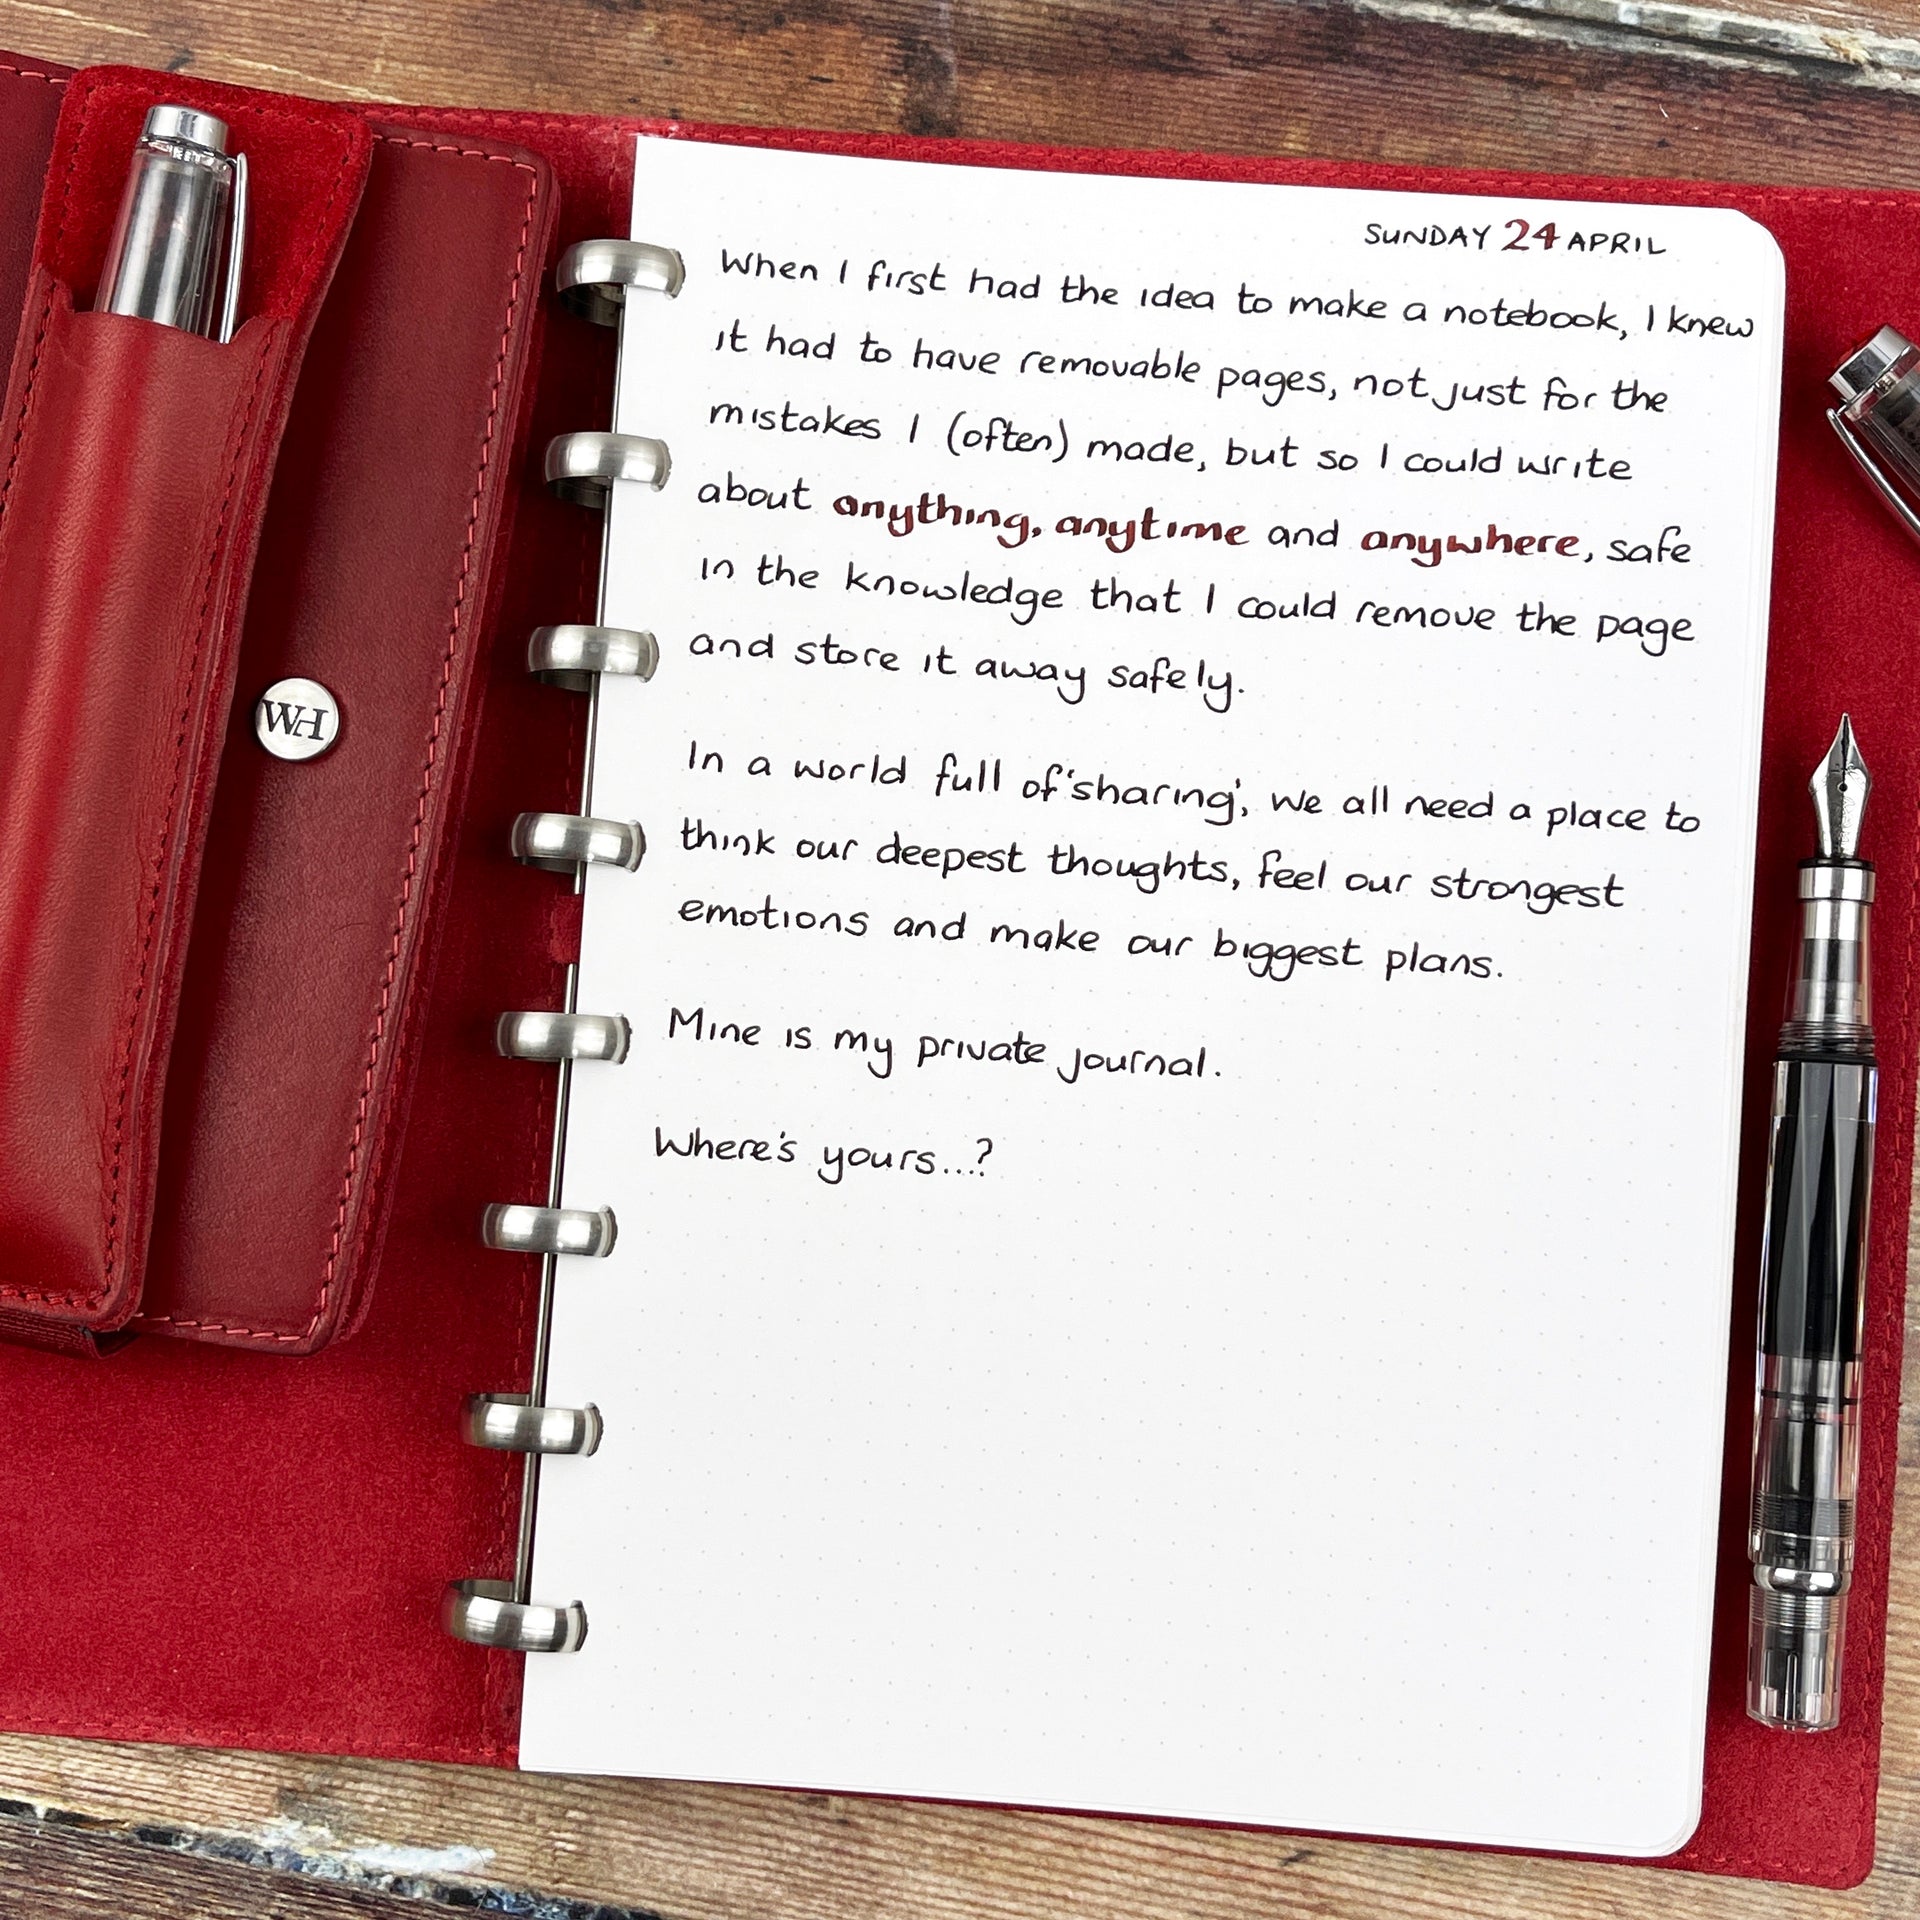 SUNDAY 24 APRIL
When I first had the idea to make a notebook, I knew
it had to have removable pages, not just for the
mistakes I (often) made, but so I could write
about anything, anytime and anywhere, safe
in the knowledge that I could remove the page
and store it away safely.
In a world full of 'sharing', we all need a place to
think our deepest thoughts, feel our strongest
emotions and make our biggest plans.
Mine is my private journal.
Where's yours...?
WH